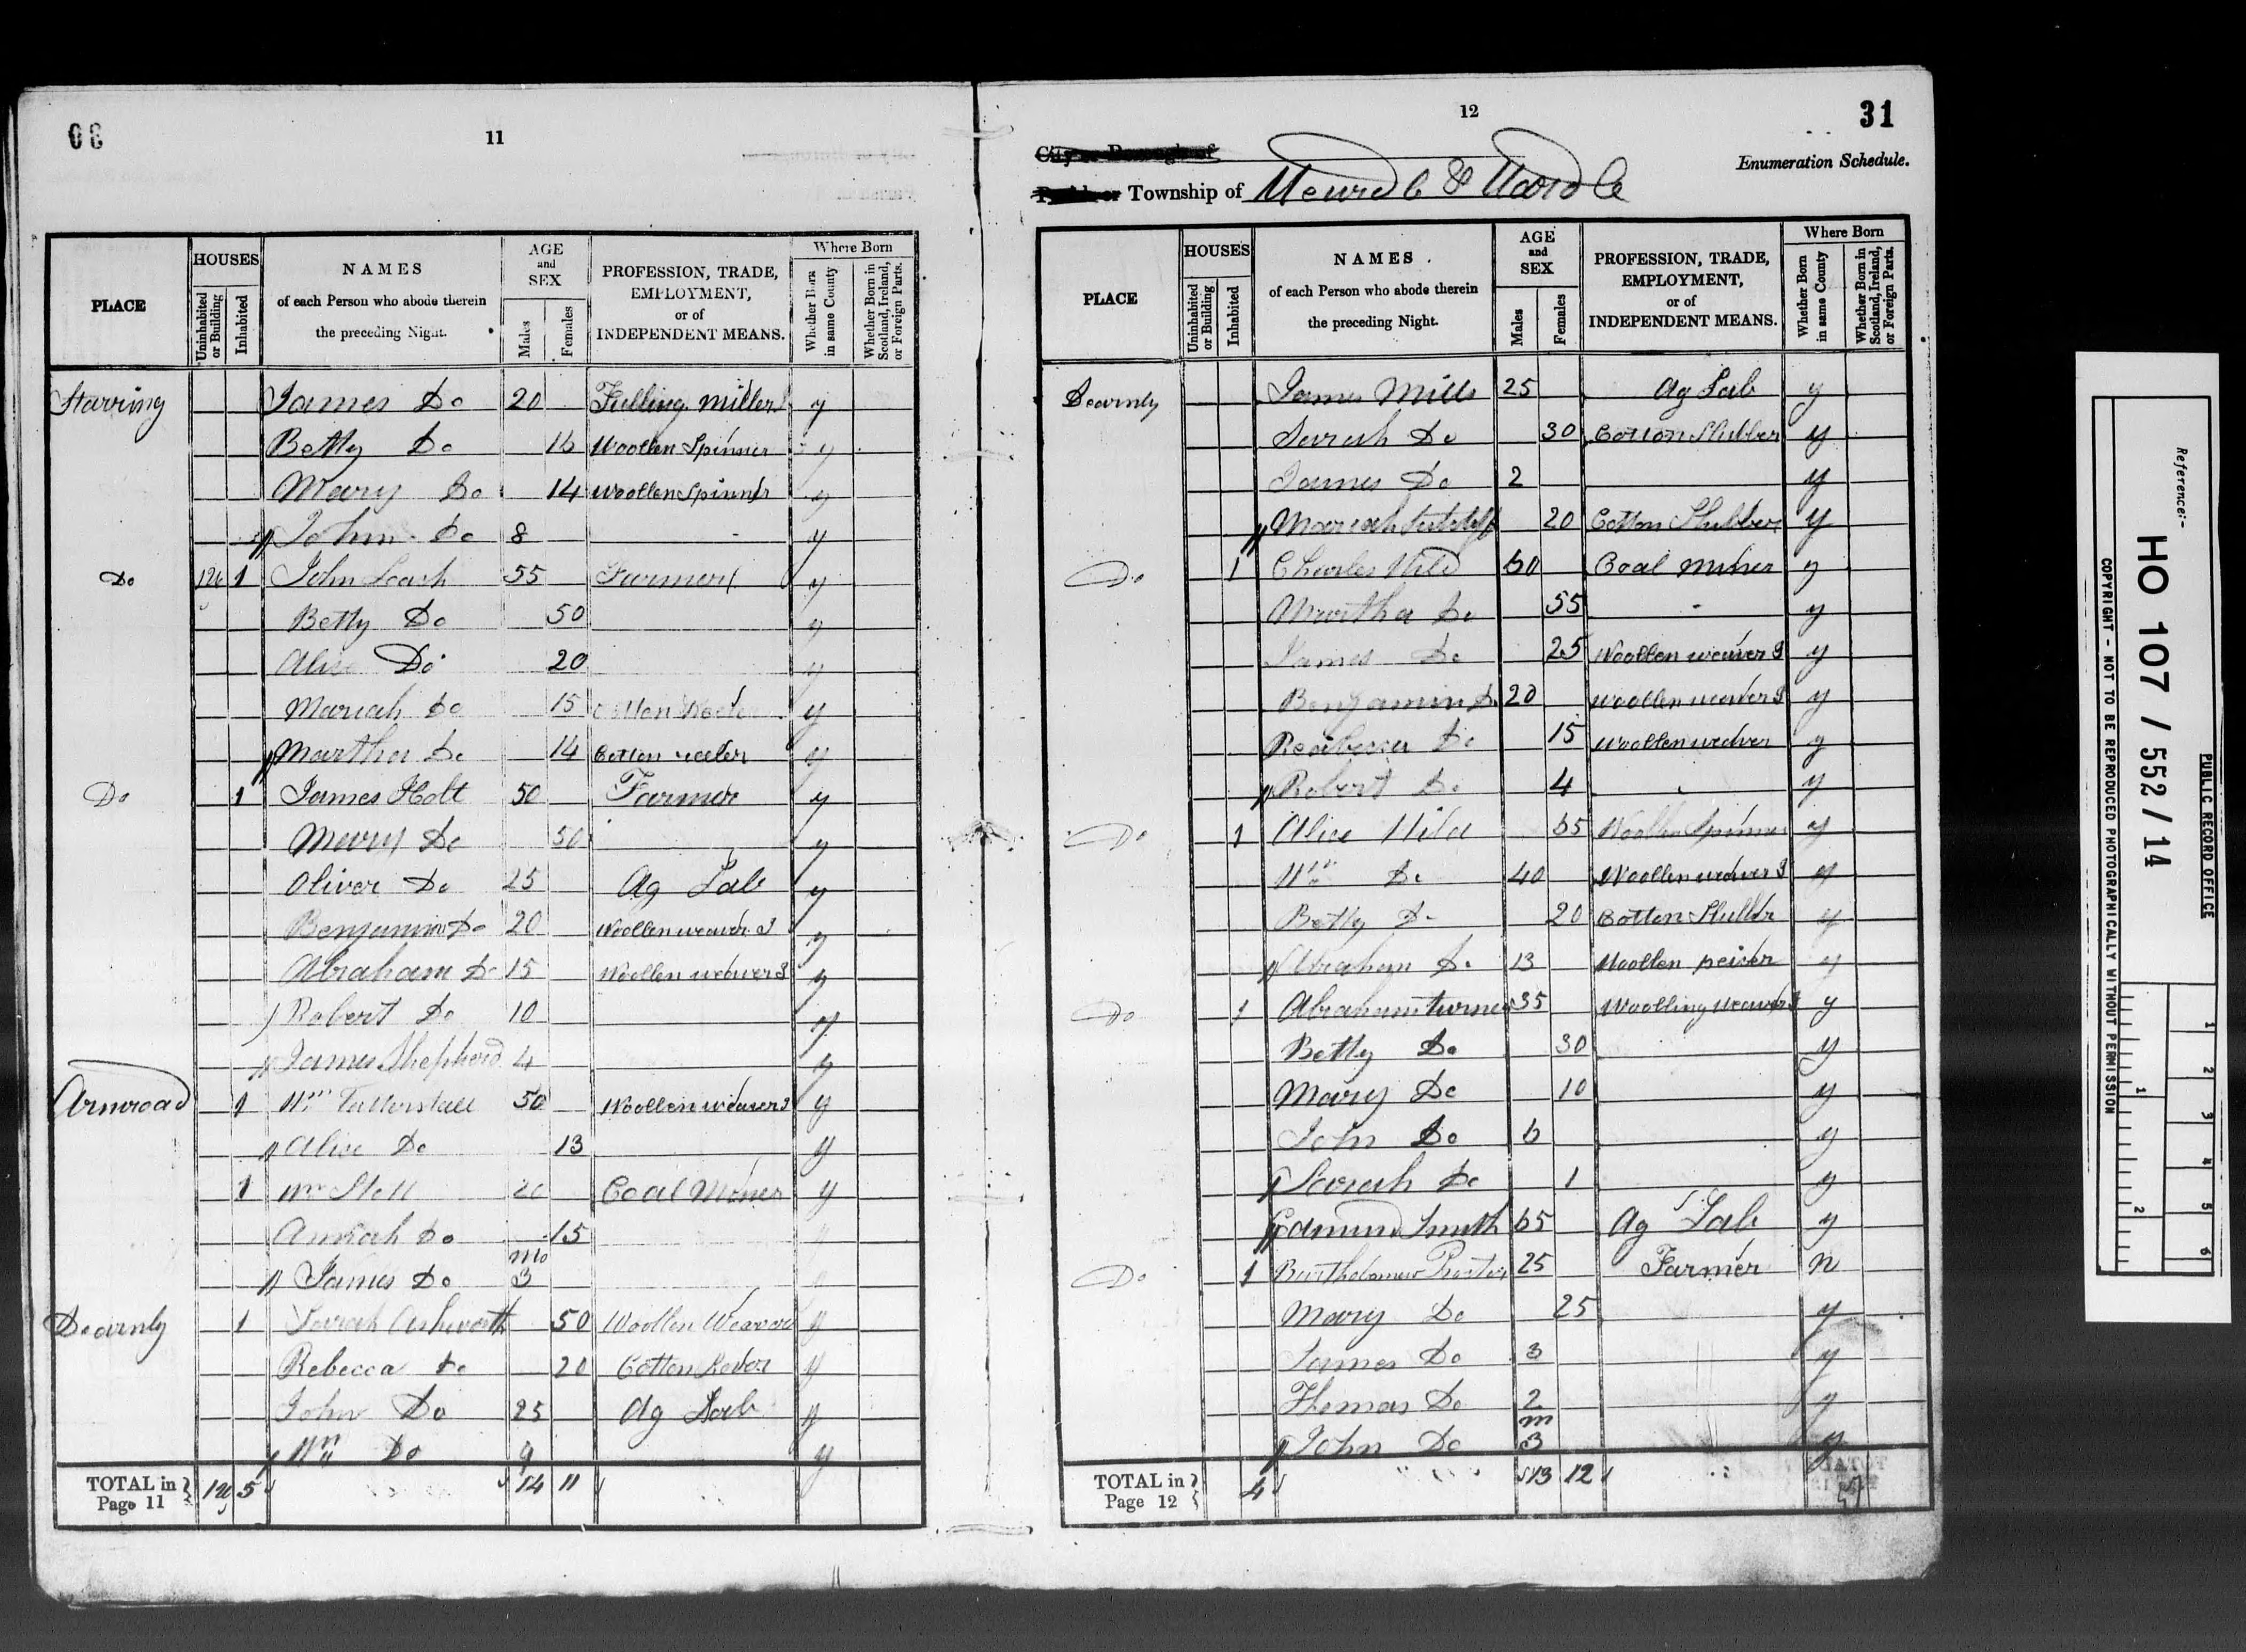 30
11
PLACE
HOUSES
Uninhabited or Building
Inhabited
NAMES
of each Person who abode therein
the preceding Night.
AGE
and
SEX
Males
Females
PROFESSION, TRADE,
EMPLOYMENT,
or of
INDEPENDENT MEANS.
Where Born
Whether Born in same County
Whether Born in Scotland, Ireland, or Foreign Parts.
Starring James Do 20 Fulling miller y
Betty Do Woollen Spinner y
Mary Do 14 Woollen Spinner y
John Do 8 y
Do 1 John Leach 55 Farmer y
Betty Do 50 y
Alice Do 20 y
Mariah Do 15 Cotton y
Martha Do 14 Cotton reeler y
Do 1 James Holt 50 Farmer y
Mary Do 50 y
Oliver Do 25 Ag Lab y
Benjamin Do 20 Woollen weaver y
Abraham Do 15 Woollen weaver y
Robert Do 10 y
James Shepherd 4 y
1 Wm Woollen weaver y
Alice Do 13 y
1 Wm 20 Coal Miner y
Do 15
James Do mo 3
Dearnly 1 Sarah Ashworth 50 Woollen Weaver y
Rebecca Do 20 Cotton y
John Do 25 Ag Lab y
Wm Do 9 y
TOTAL in Page 11 5 14 11
12
31
City or Borough of
Enumeration Schedule.
Parish or Township of
PLACE
HOUSES
Uninhabited or Building
Inhabited
NAMES
of each Person who abode therein
the preceding Night.
AGE
and
SEX
Males
Females
PROFESSION, TRADE,
EMPLOYMENT,
or of
INDEPENDENT MEANS.
Where Born
Whether Born in same County
Whether Born in Scotland, Ireland, or Foreign Parts.
Dearnly James Mills 25 Ag Lab y
Sarah Do 30 Cotton Slubber y
James Do 2 y
Mariah 20 Cotton Slubber y
Do 1 Charles 60 Coal miner y
Martha Do 55 y
James Do 25 Woollen weaver y
Benjamin Do 20 Woollen weaver y
Do 15 Woollen weaver y
Robert Do 4 y
Do 1 Alice 65 Woollen Spinner y
Wm Do 40 Woollen weaver y
Betty Do 20 Cotton y
Abraham Do 13 Woollen y
Do 1 Abraham turner 35 y
Betty Do 30 y
Mary Do 10 y
John Do 6 y
Sarah Do 1 y
Edmund Smith 65 Ag Lab y
Do 1 Bartholomew 25 Farmer n
Mary Do 25 y
James Do 3 y
Thomas Do 2 y
John Do m 3 y
TOTAL in Page 12 4 13 12
PUBLIC RECORD OFFICE
Reference:-
HO 107 / 552 / 14
COPYRIGHT - NOT TO BE REPRODUCED PHOTOGRAPHICALLY WITHOUT PERMISSION
1 2 3 4 5 6
1 2